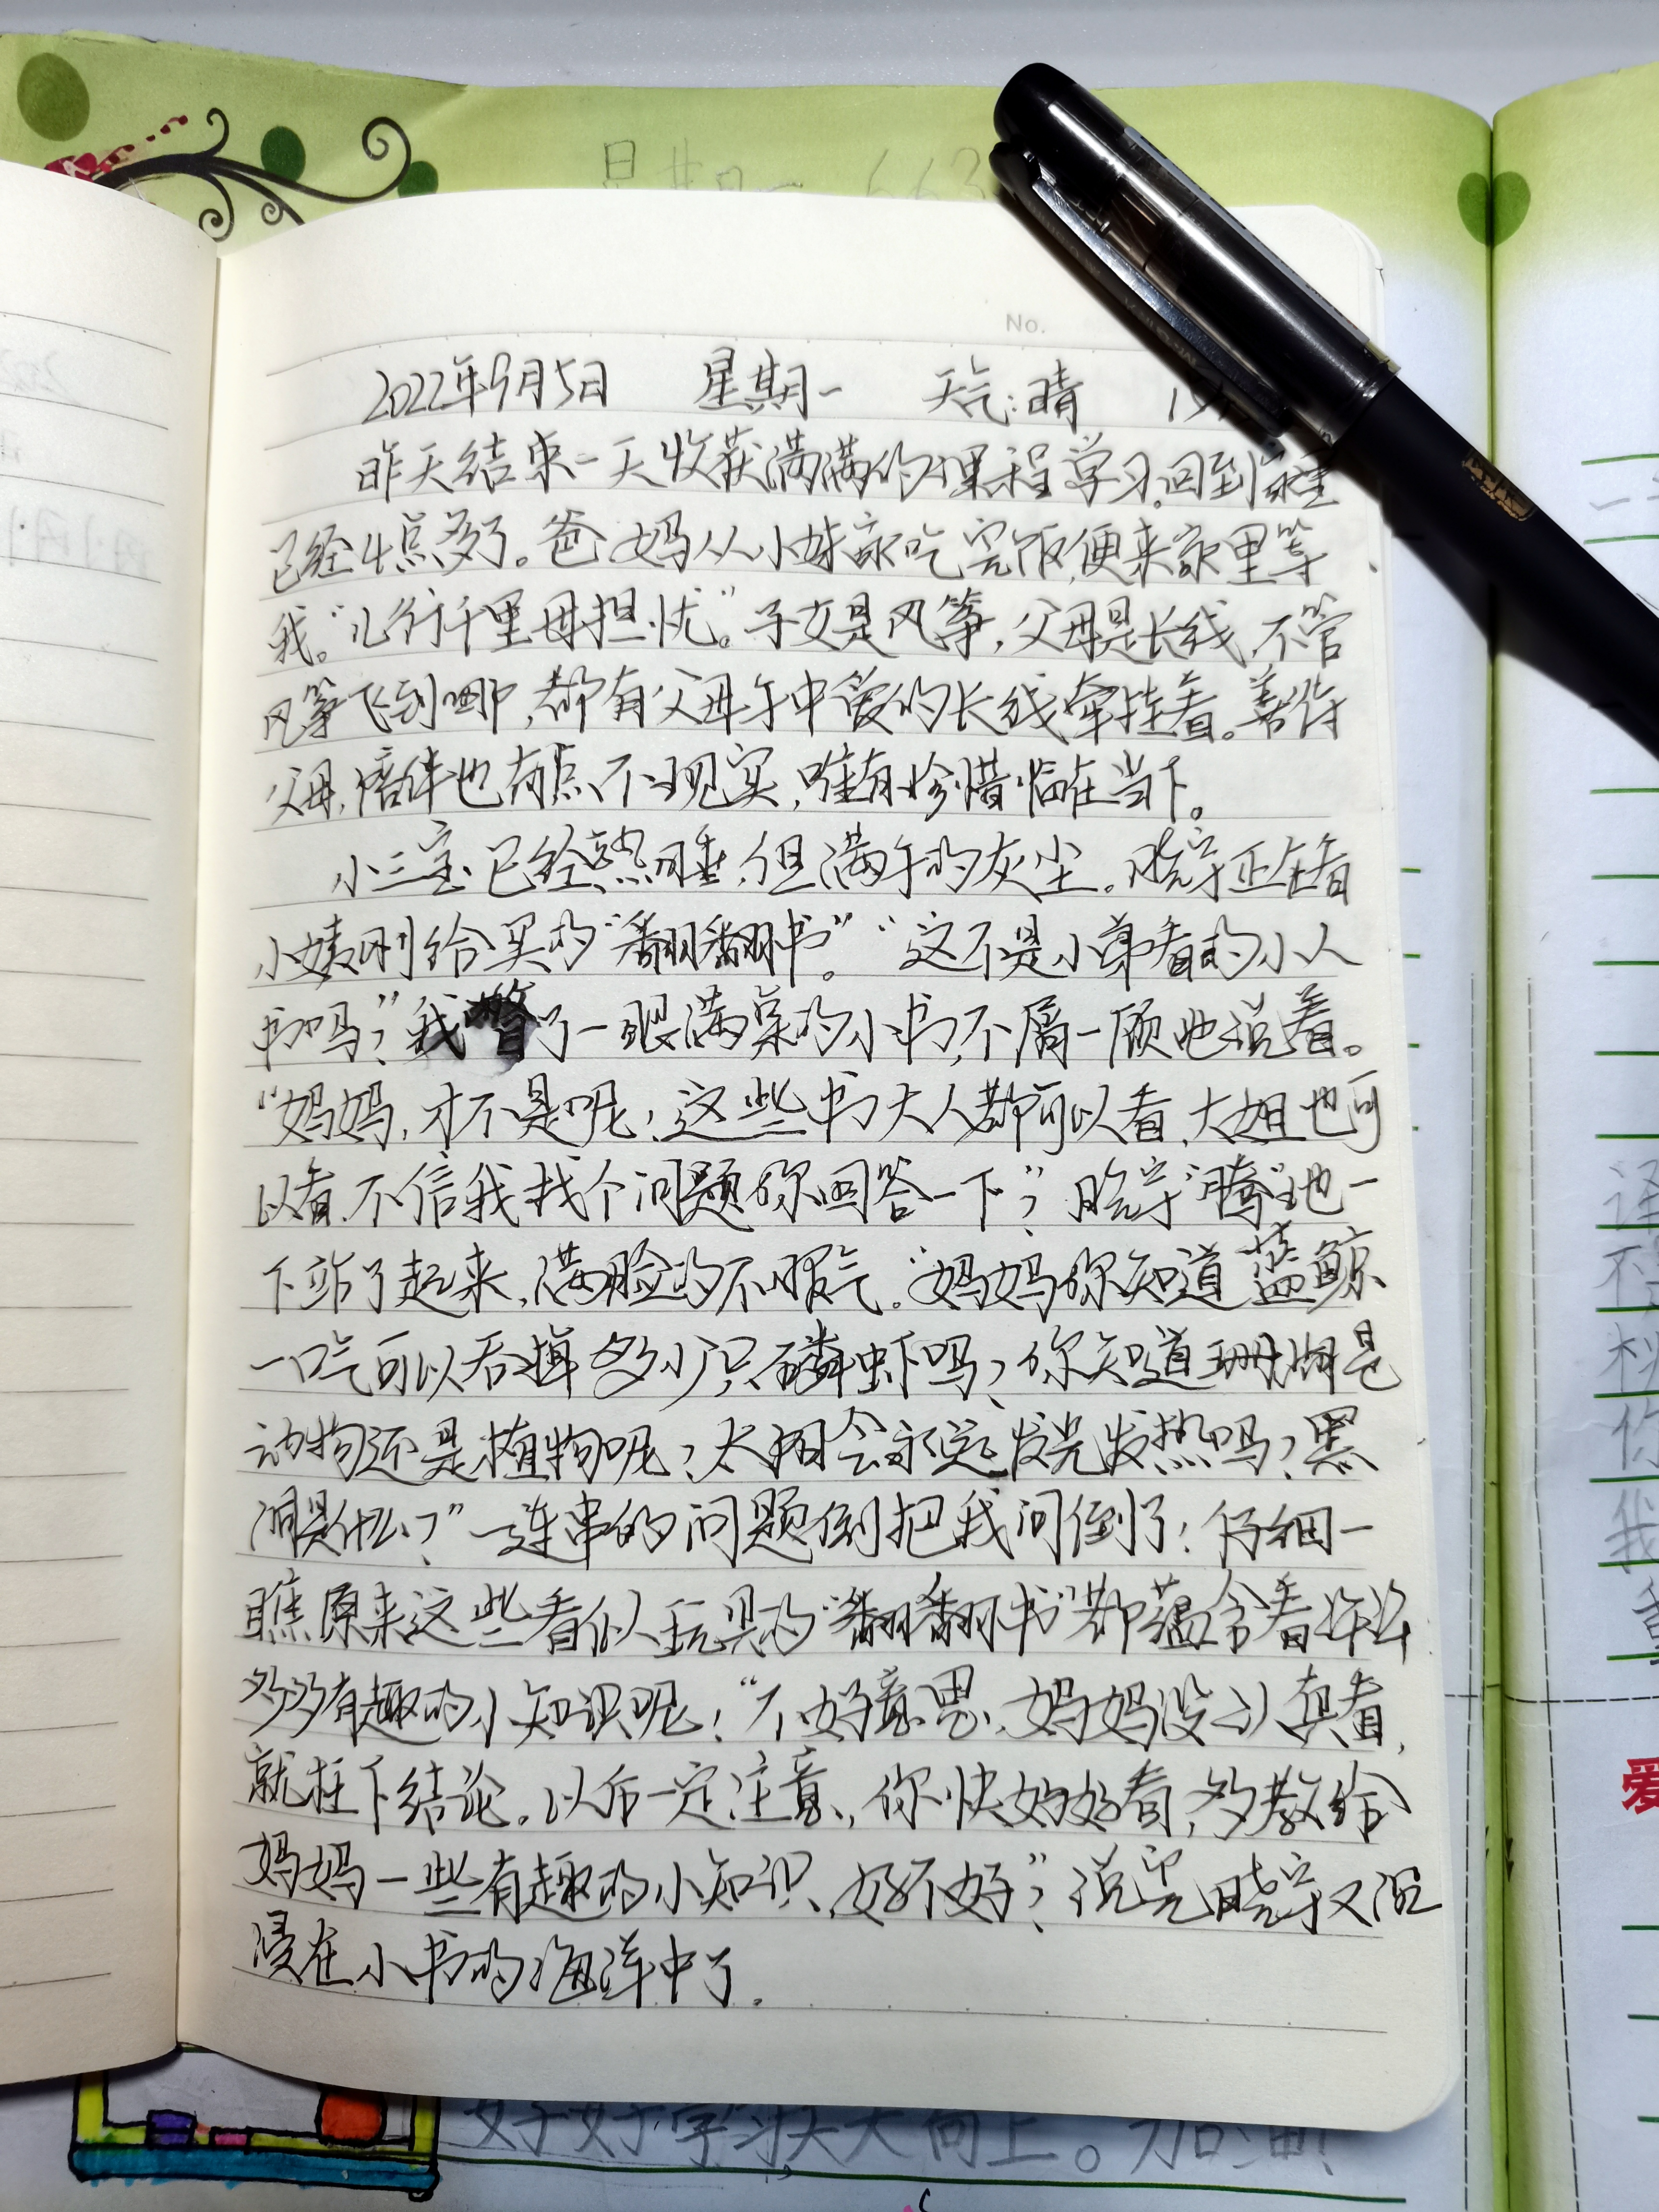 星期一 663
No.
2022年9月5日 星期一 天气:晴
昨天结束一天收获满满的课程学习,回到家里
已经4点多了。爸妈从小妹家吃完饭,便来家里等
我。“儿行千里母担忧”。子女是风筝,父母是长线,不管
风筝飞到哪,都有父母手中爱的长线牵挂着。善待
父母,陪伴也有点不现实,唯有珍惜临在当下。
小三宝已经熟睡,但满手的灰尘。晓宇正在看
小姨刚给买的“翻翻书”。“这不是小弟看的小人
书吗?”我瞥了一眼满桌的小书,不屑一顾地说着。
“妈妈,才不是呢!这些书大人都可以看,大姐也可
以看,不信我找个问题你回答一下”?晓宇“腾”地一
下站了起来,满脸的不服气。“妈妈你知道蓝鲸
一口气可以吞掉多少只磷虾吗?你知道珊瑚是
动物还是植物呢?太阳会永远发光发热吗?黑
洞是什么?”一连串的问题倒把我问倒了!仔细一
瞧原来这些看似玩具的“翻翻书”都蕴含着许许
多多有趣的小知识呢!“不好意思,妈妈没认真看,
就枉下结论。以后一定注意,你快好好看,多教给
妈妈一些有趣的小知识,好不好”?说完晓宇又沉
浸在小书的海洋中了.
好好学习天天向上。加油!
爱